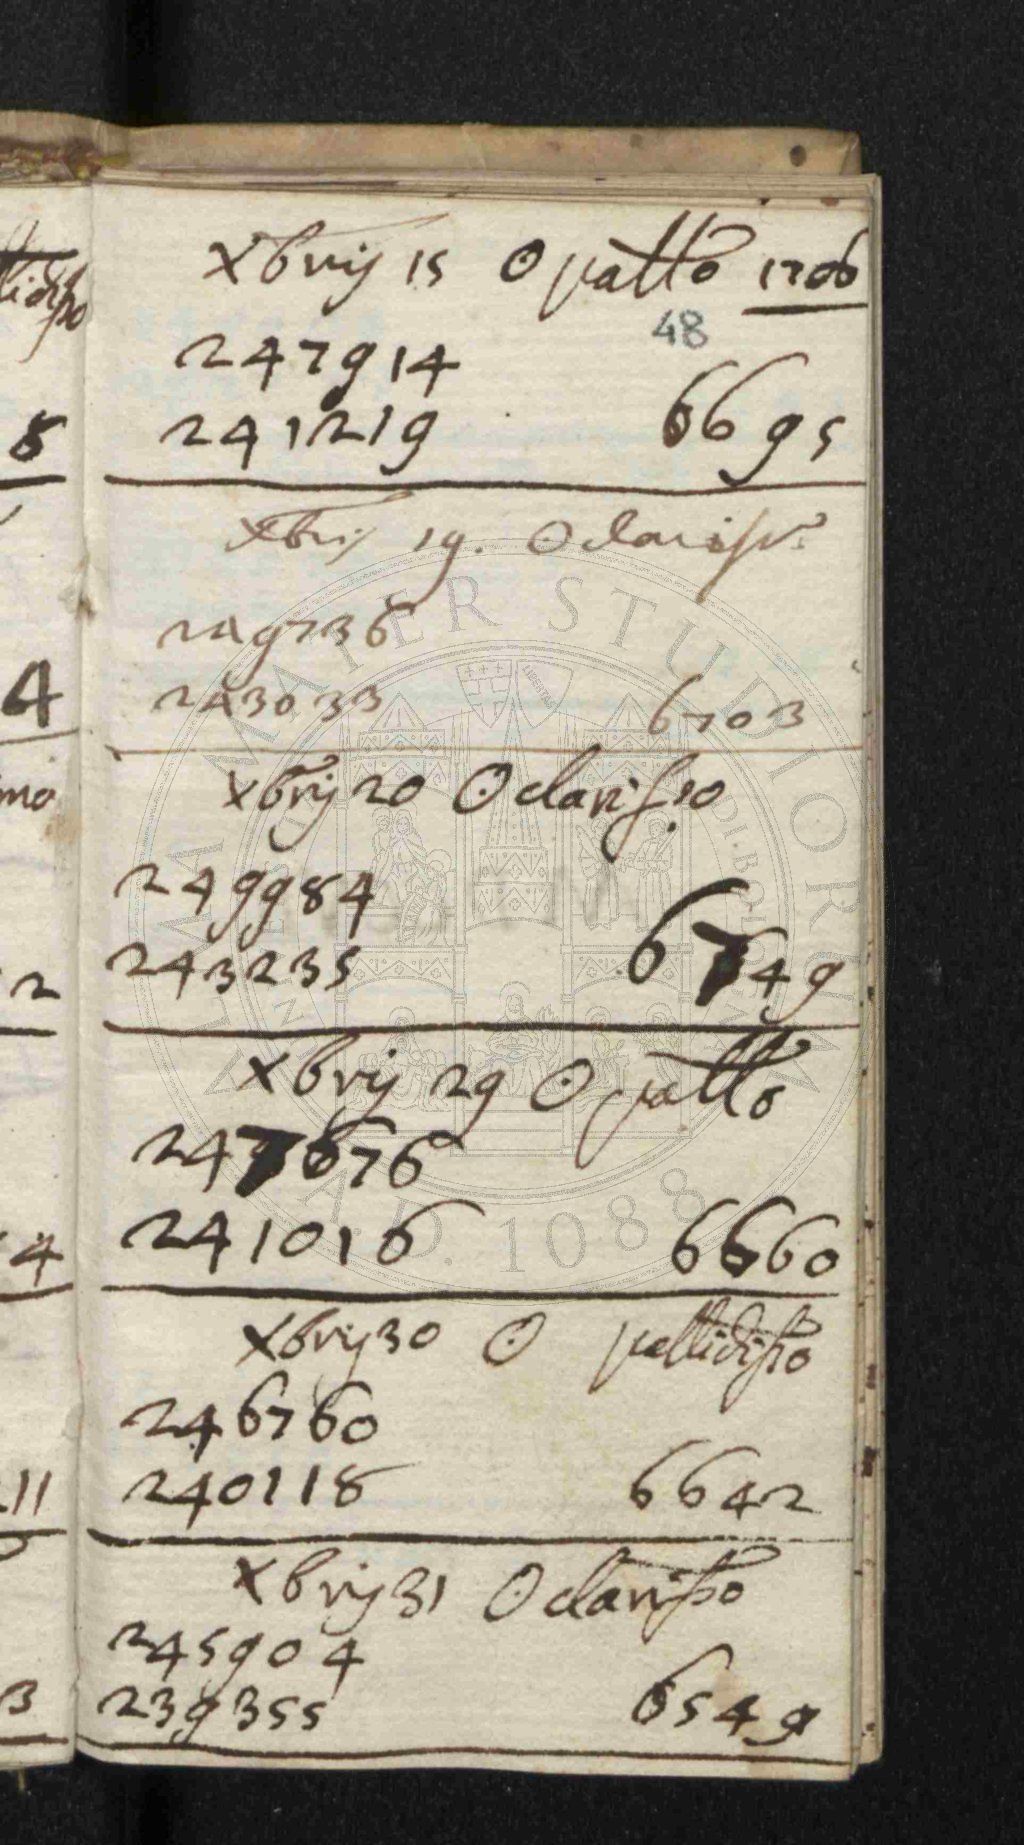 Xbrij 15 ☉ pallo 1706
48
247914
241219 6695
Xbrij 19. ☉ clariss.
249736
243033 6703
Xbrij 20 ☉ clarisso
249984
243235 6749
Xbrij 29 ☉ pallo
247676
241016 6660
Xbrij 30 ☉ pallidisso
246760
240118 6642
Xbrij 31 ☉ clarisso
245904
239355 6549
8
4
mo
2
4
11
3
ALMA MATER STUDIORUM
A.D. 1088
LIBERTAS